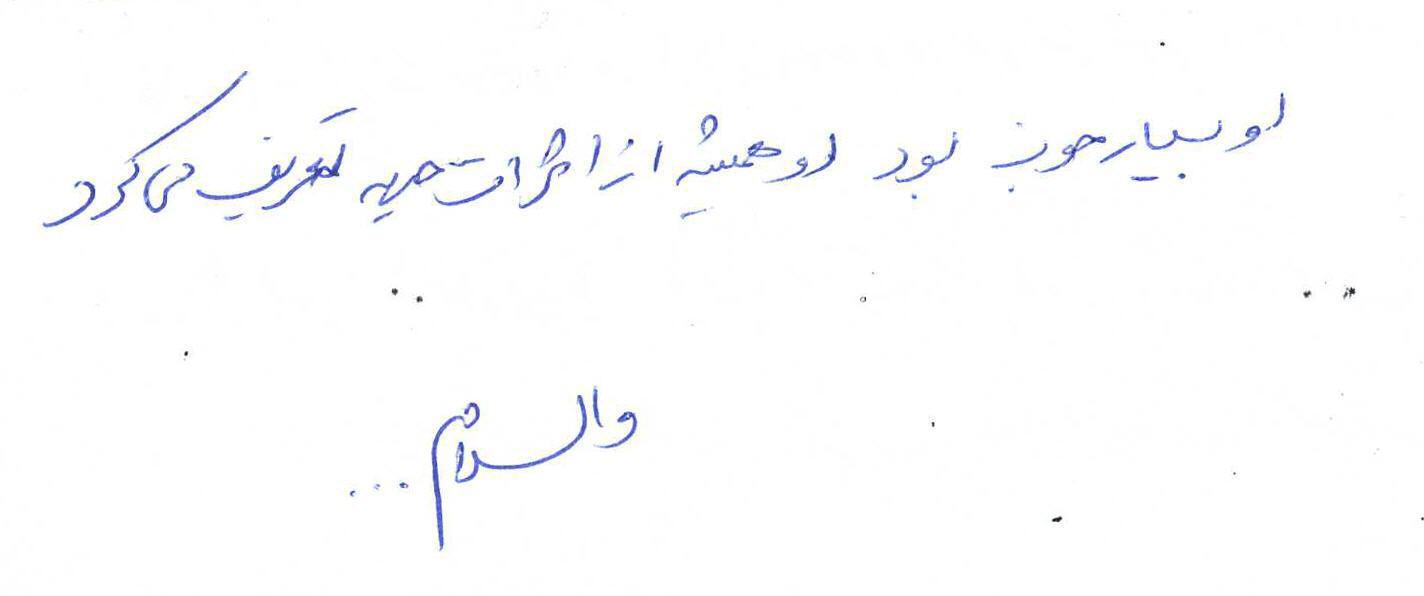 او بسیار خوب بود او همیشه از اثرات جبهه تعریف می‌کرد
والسلام ...